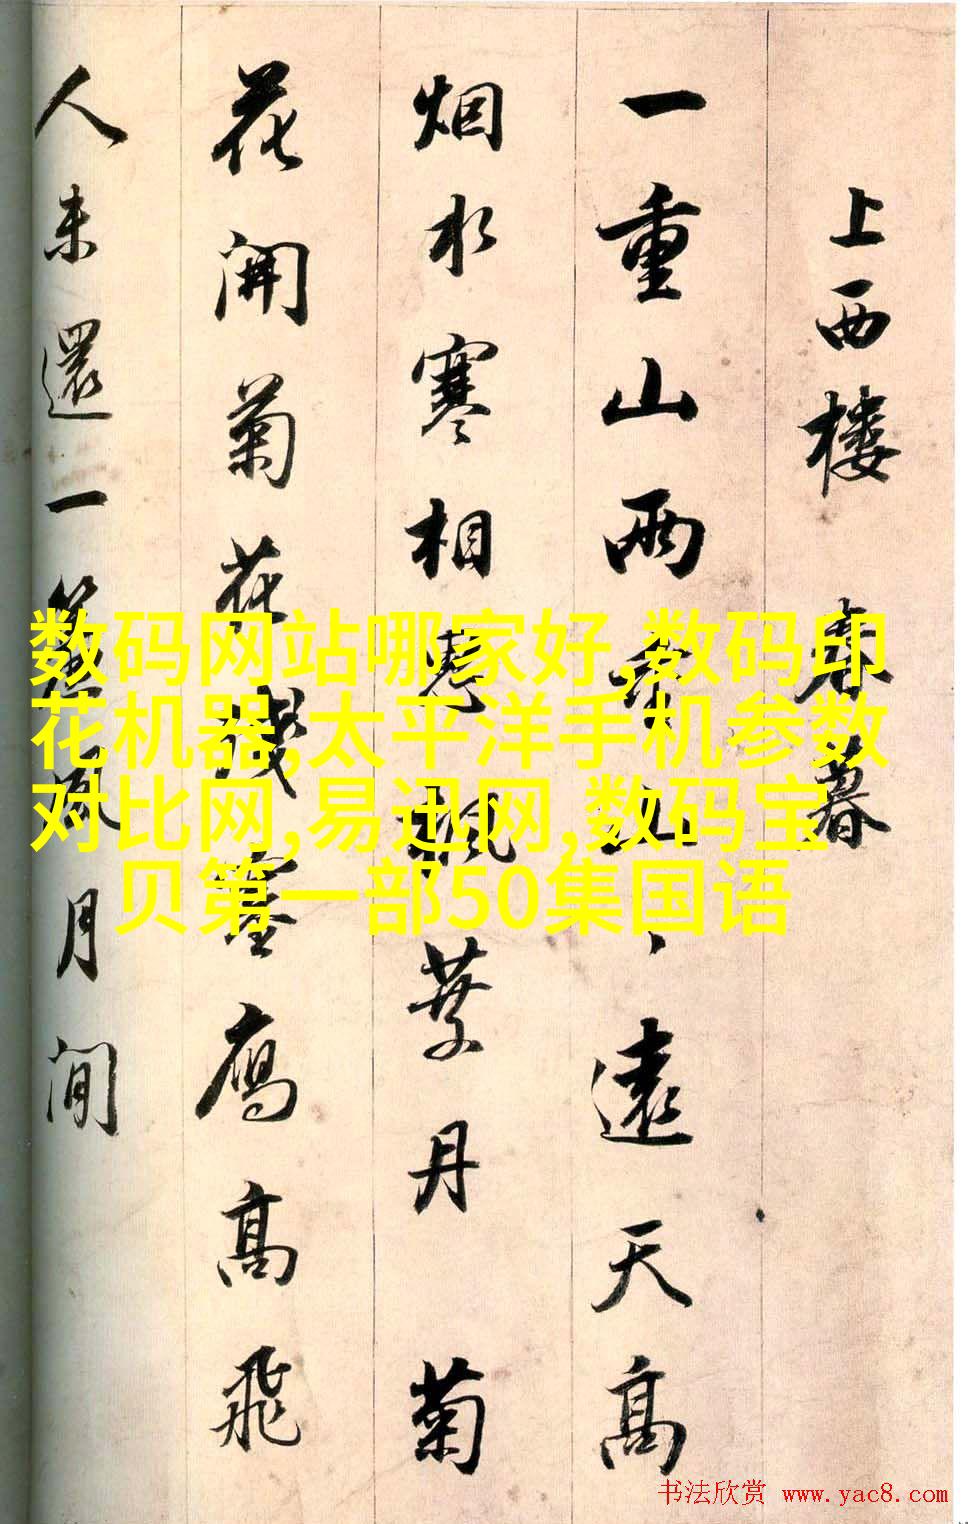 上西楼 秋暮
一重山兩重山山遠天高
烟水寒相思楓葉丹菊
花開菊花殘塞鴈高飛
人未還一簾風月閒
数码网站哪家好,数码印
花机器,太平洋手机参数
对比网,易迅网,数码宝
贝第一部50集国语
书法欣赏 www.yac8.com